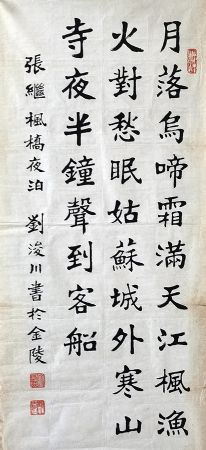 月落烏啼霜滿天江楓漁
火對愁眠姑蘇城外寒山
寺夜半鐘聲到客船
張繼楓橋夜泊 劉浚川書於金陵